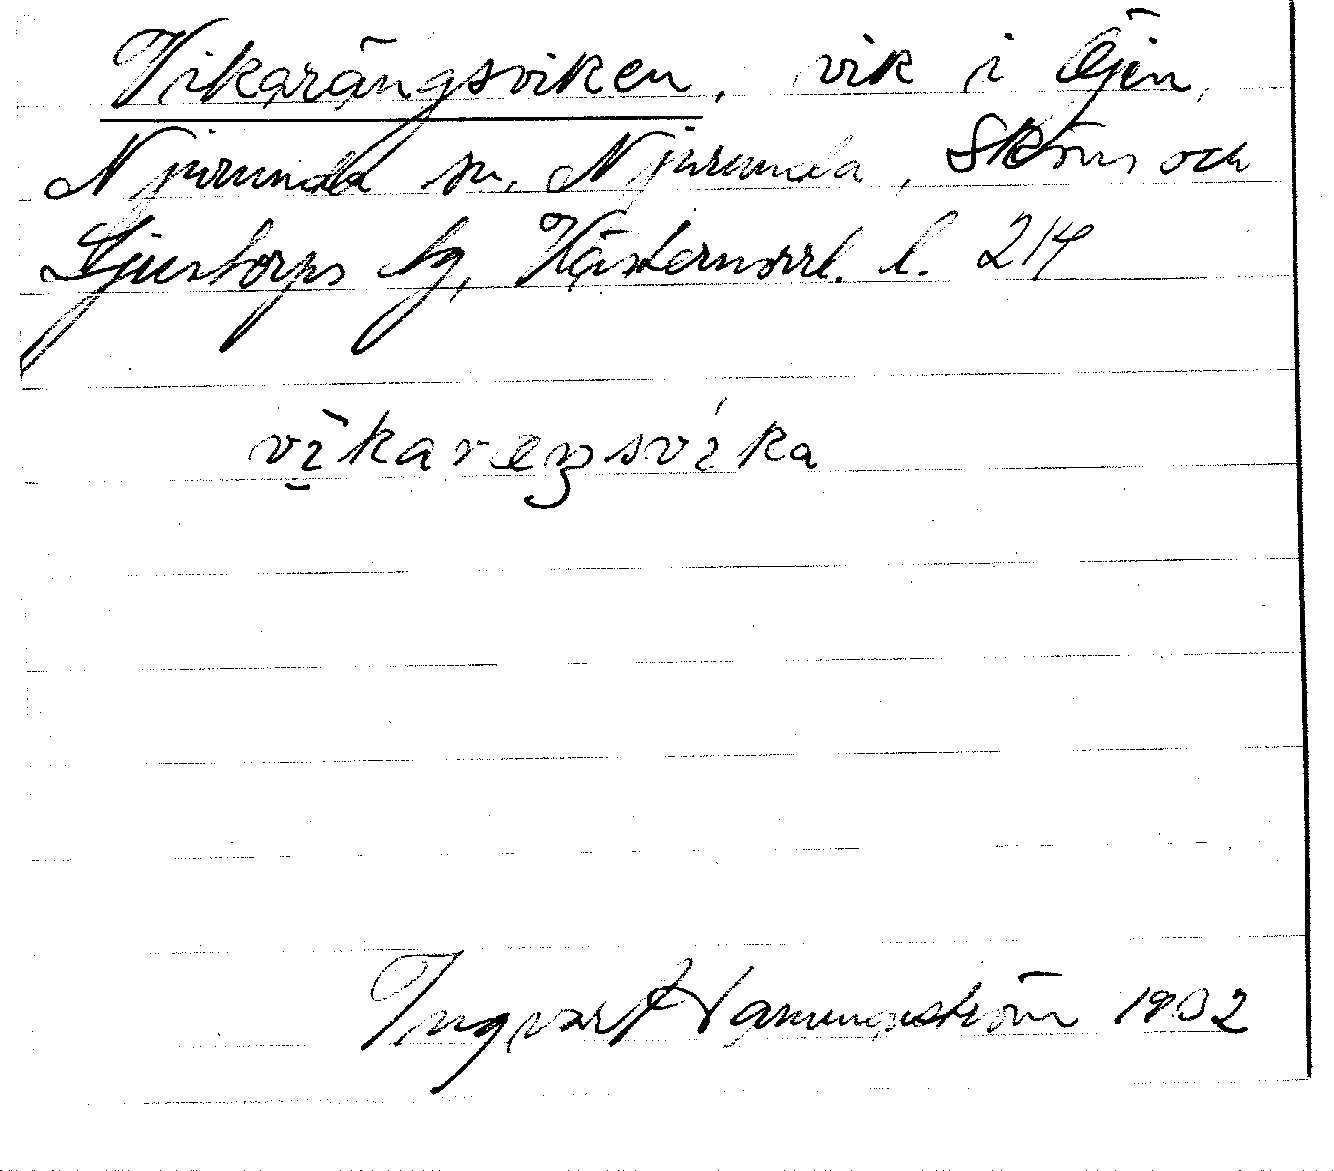 Vikarängsviken, vik i Öjen,
Njurunda sn, Njurunda, Sköns och
Ljustorps tg, Västernorrl. l. 214
vikareŋsvika
Ingvar Hammarström 1902